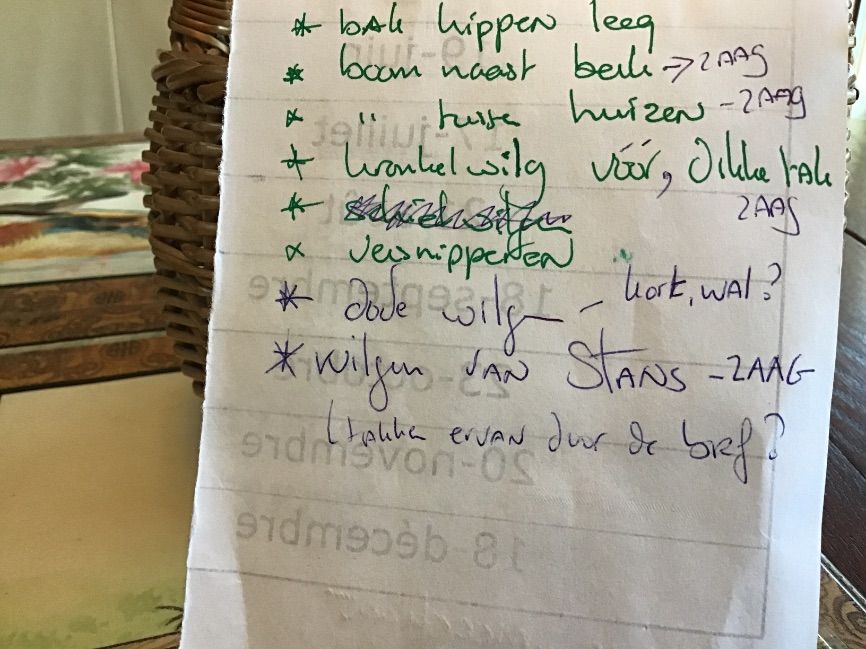 * bak kippen leeg
* boom naast beek → ZAAG
* " tussen huizen - ZAAG
* kronkelwilg vóór, dikke tak
ZAAG
*
* versnipperen
* dode wilgen - kort, wal?
* wilgen VAN STANS - ZAAG
takken ERVAN door de
19-juin
17-juillet
18-septembre
23-octobre
20-novembre
18-décembre